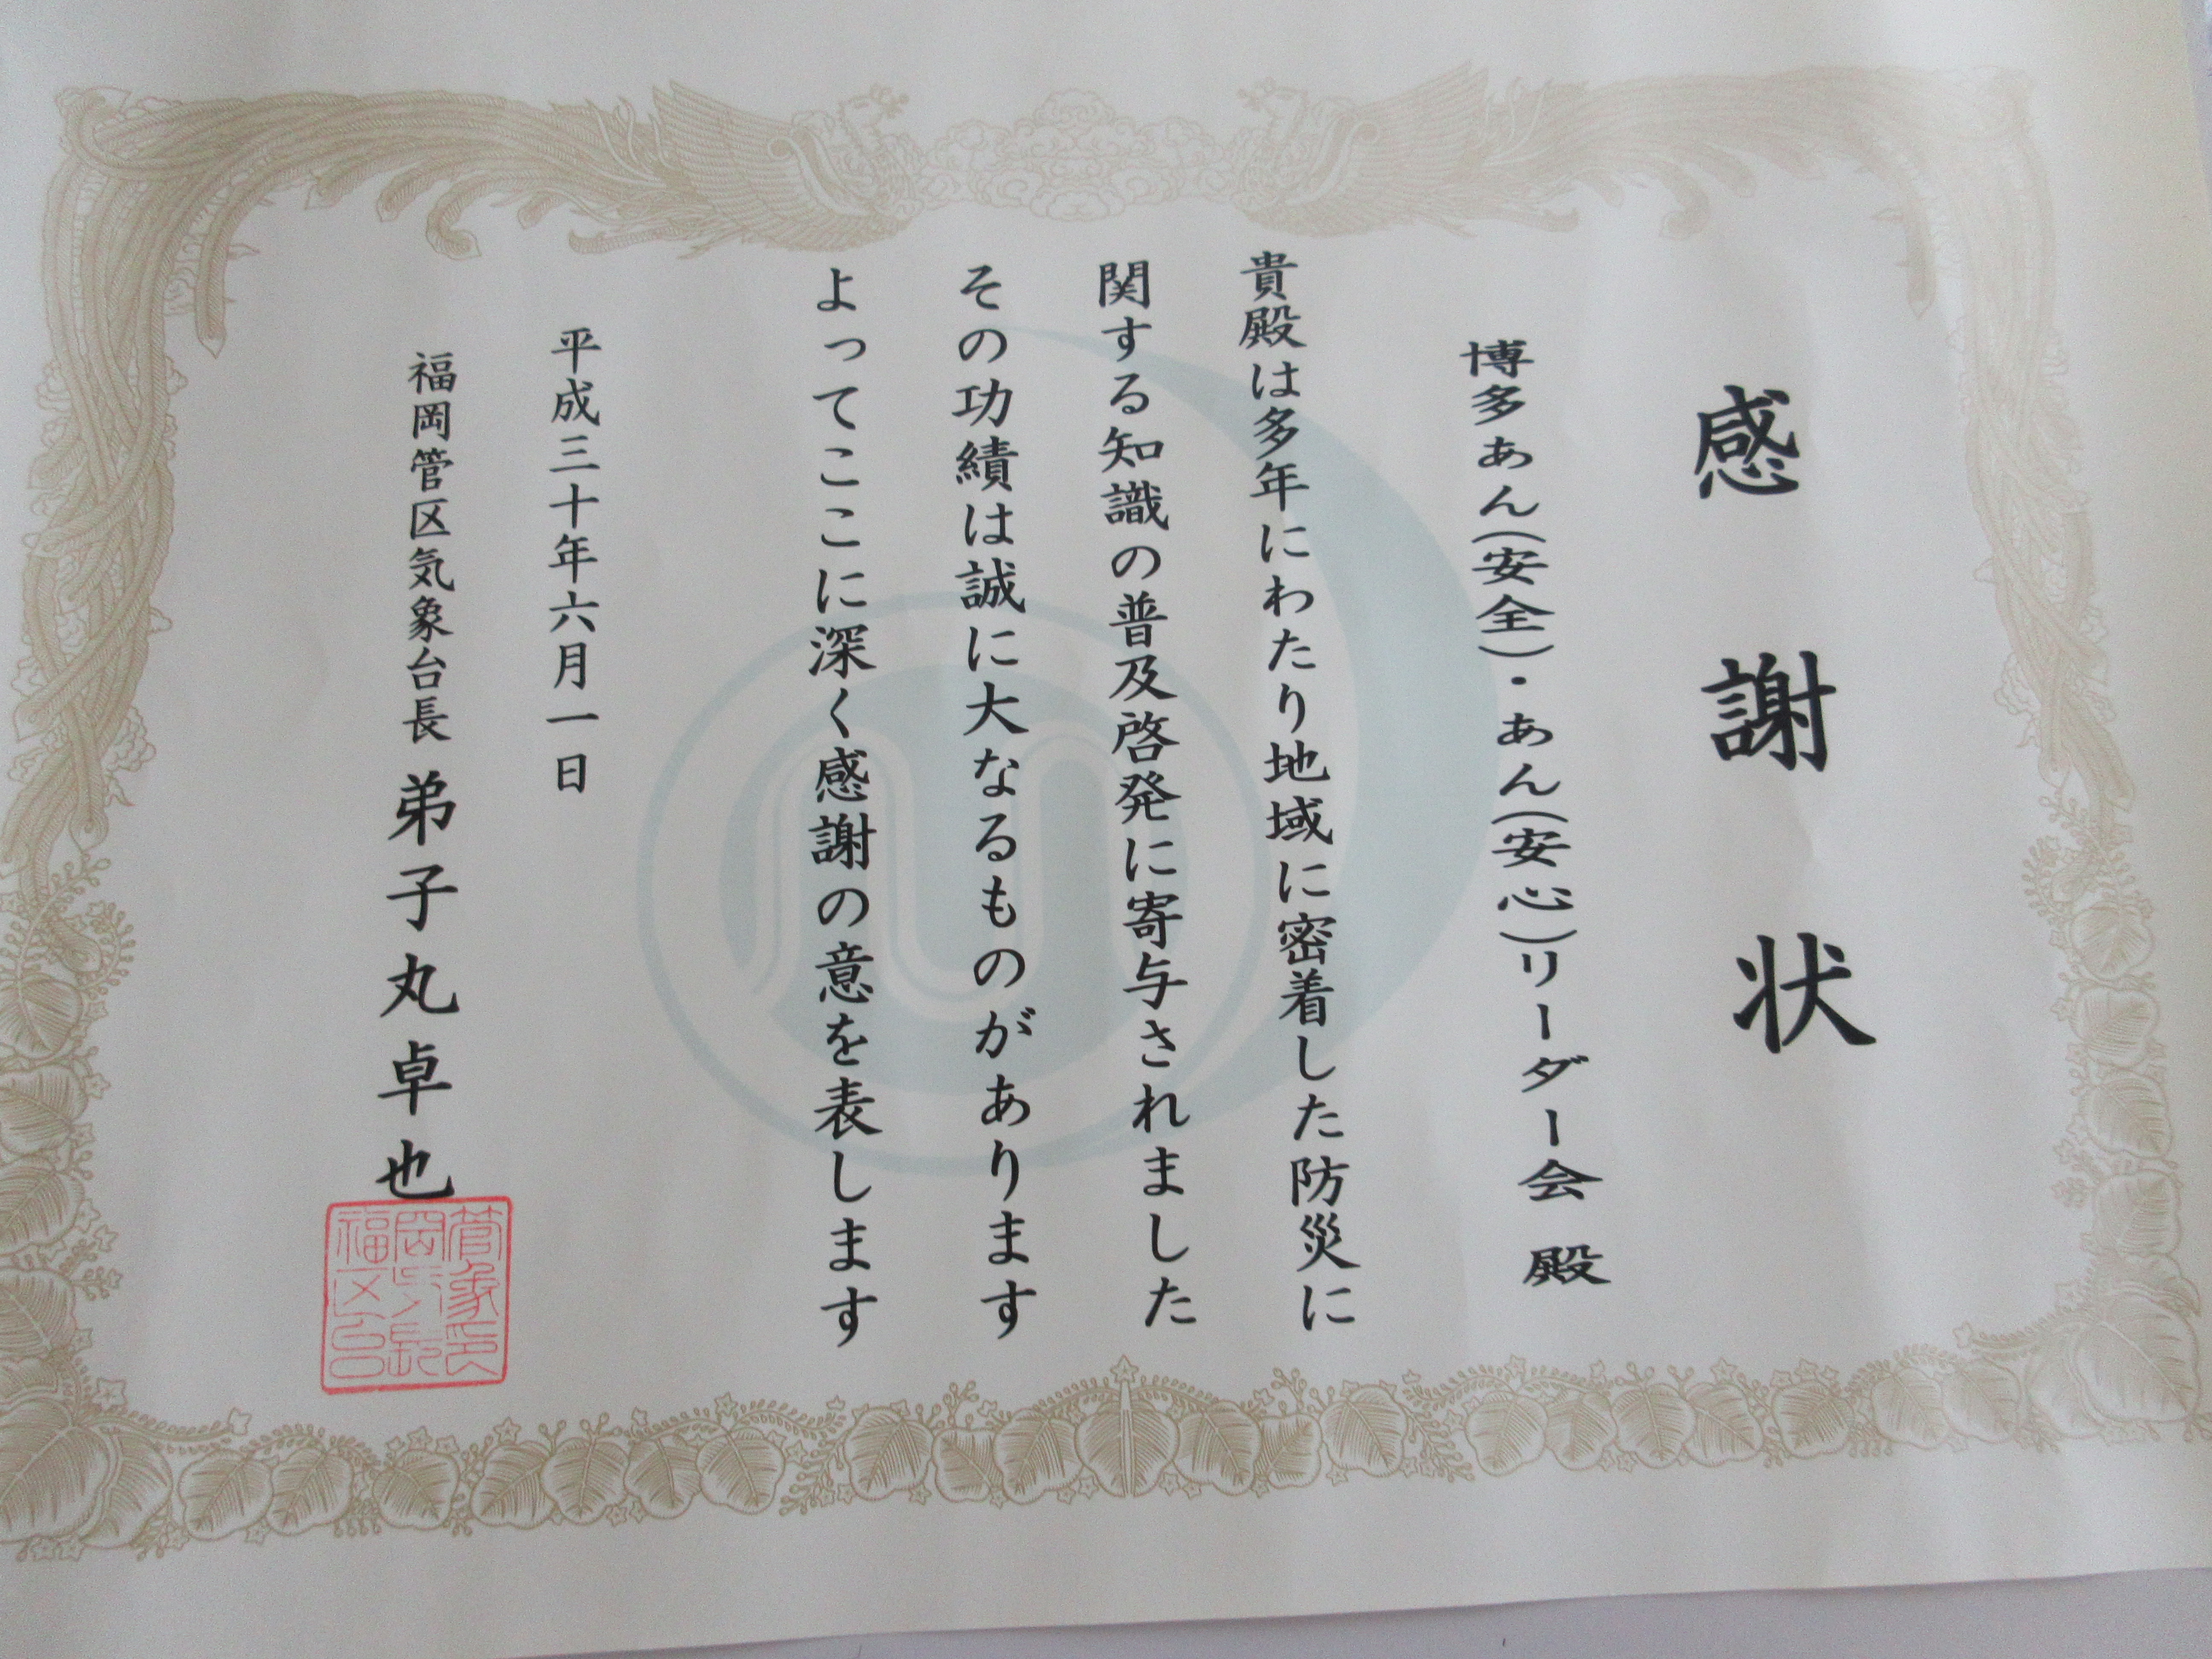 感謝状
博多あん(安全)・あん(安心)リーダー会 殿
貴殿は多年にわたり地域に密着した防災に
関する知識の普及啓発に寄与されました
その功績は誠に大なるものがあります
よってここに深く感謝の意を表します
平成三十年六月一日
福岡管区気象台長 弟子丸卓也